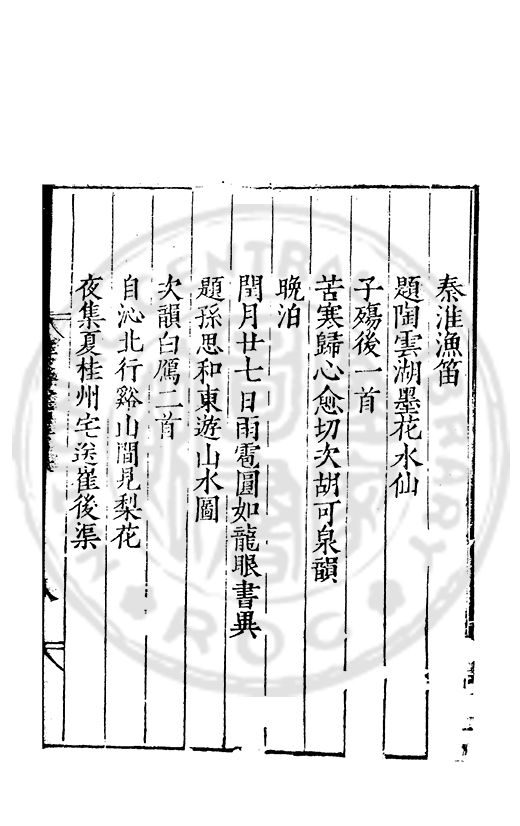 秦淮漁笛
題陶雲湖墨花水仙
子殤後一首
苦寒歸心愈切次胡可泉韻
晚泊
閏月廿七日雨雹圓如龍眼書異
題孫思和東遊山水圖
次韻白鴈二首
自沁北行谿山間見梨花
夜集夏桂州宅送崔後渠